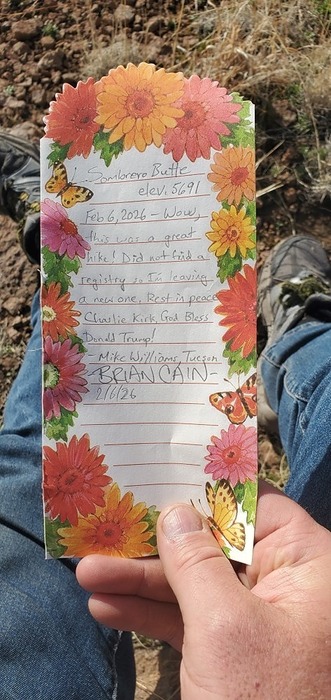 Sombrero Butte
elev. 5691
Feb 6, 2026 - Wow,
this was a great
hike! Did not find a
registry so I'm leaving
a new one. Rest in peace
Charlie Kirk, God Bless
Donald Trump!
- Mike Williams, Tucson
BRIAN CAIN -
2/6/26